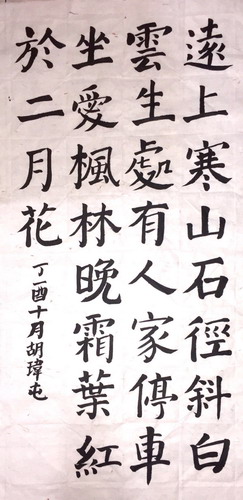 遠上寒山石徑斜白
雲生處有人家停車
坐愛楓林晚霜葉紅
於二月花
丁酉十月胡瑋屯